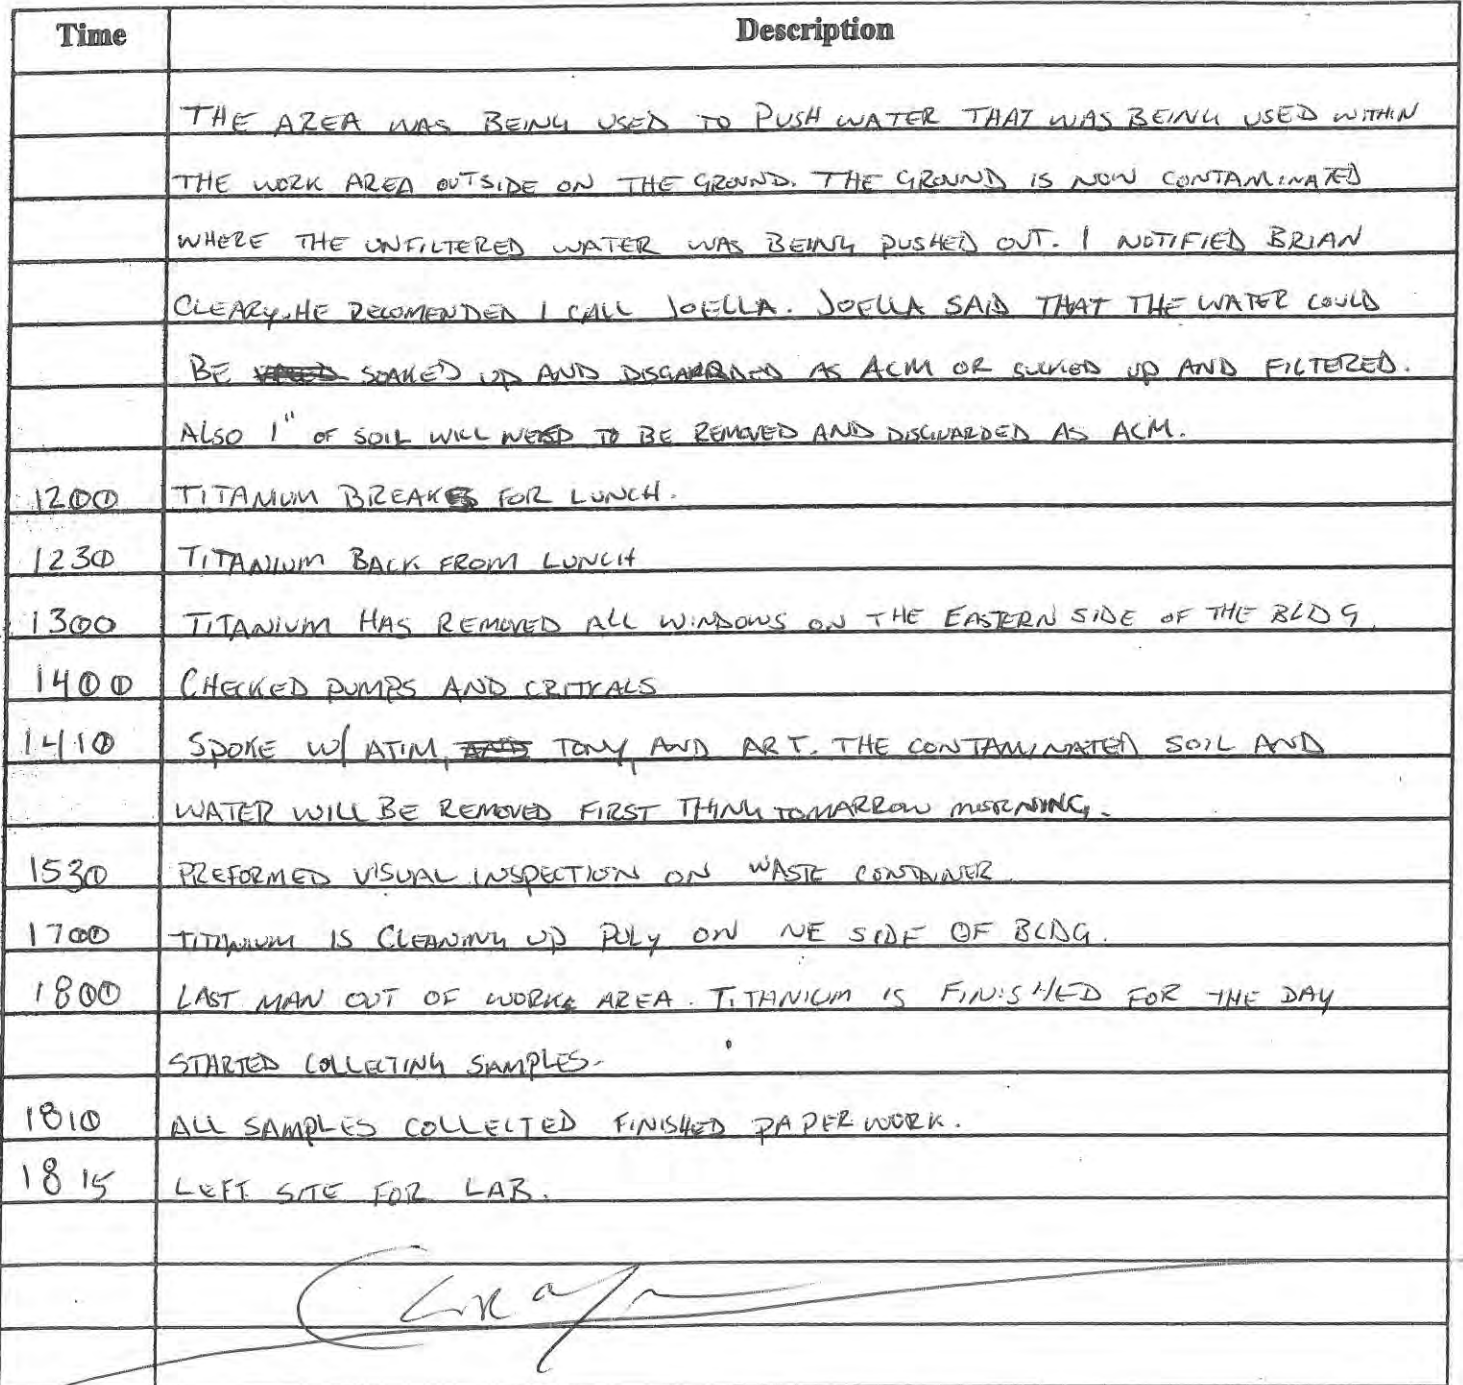 Time Description
THE AREA WAS BEING USED TO PUSH WATER THAT WAS BEING USED WITHIN
THE WORK AREA OUTSIDE ON THE GROUND. THE GROUND IS NOW CONTAMINATED
WHERE THE UNFILTERED WATER WAS BEING PUSHED OUT. I NOTIFIED BRIAN
CLEARY. HE RECOMENDED I CALL JOELLA. JOELLA SAID THAT THE WATER COULD
BE SOAKED UP AND DISGARRDED AS ACM OR SUCKED UP AND FILTERED.
ALSO 1" OF SOIL WILL NEED TO BE REMOVED AND DISGUARDED AS ACM.
1200 TITANIUM BREAKS FOR LUNCH.
1230 TITANIUM BACK FROM LUNCH
1300 TITANIUM HAS REMOVED ALL WINDOWS ON THE EASTERN SIDE OF THE BLDG.
1400 CHECKED PUMPS AND CRITICALS
1410 SPOKE W/ ATIM, TONY, AND ART. THE CONTAMINATED SOIL AND
WATER WILL BE REMOVED FIRST THING TOMARROW MORNING.
1530 PREFORMED VISUAL INSPECTION ON WASTE CONTAINER.
1700 TITANIUM IS CLEANING UP POLY ON NE SIDE OF BLDG.
1800 LAST MAN OUT OF WORK AREA. TITANIUM IS FINISHED FOR THE DAY
STARTED COLLECTING SAMPLES.
1810 ALL SAMPLES COLLECTED FINISHED PAPER WORK.
1815 LEFT SITE FOR LAB.